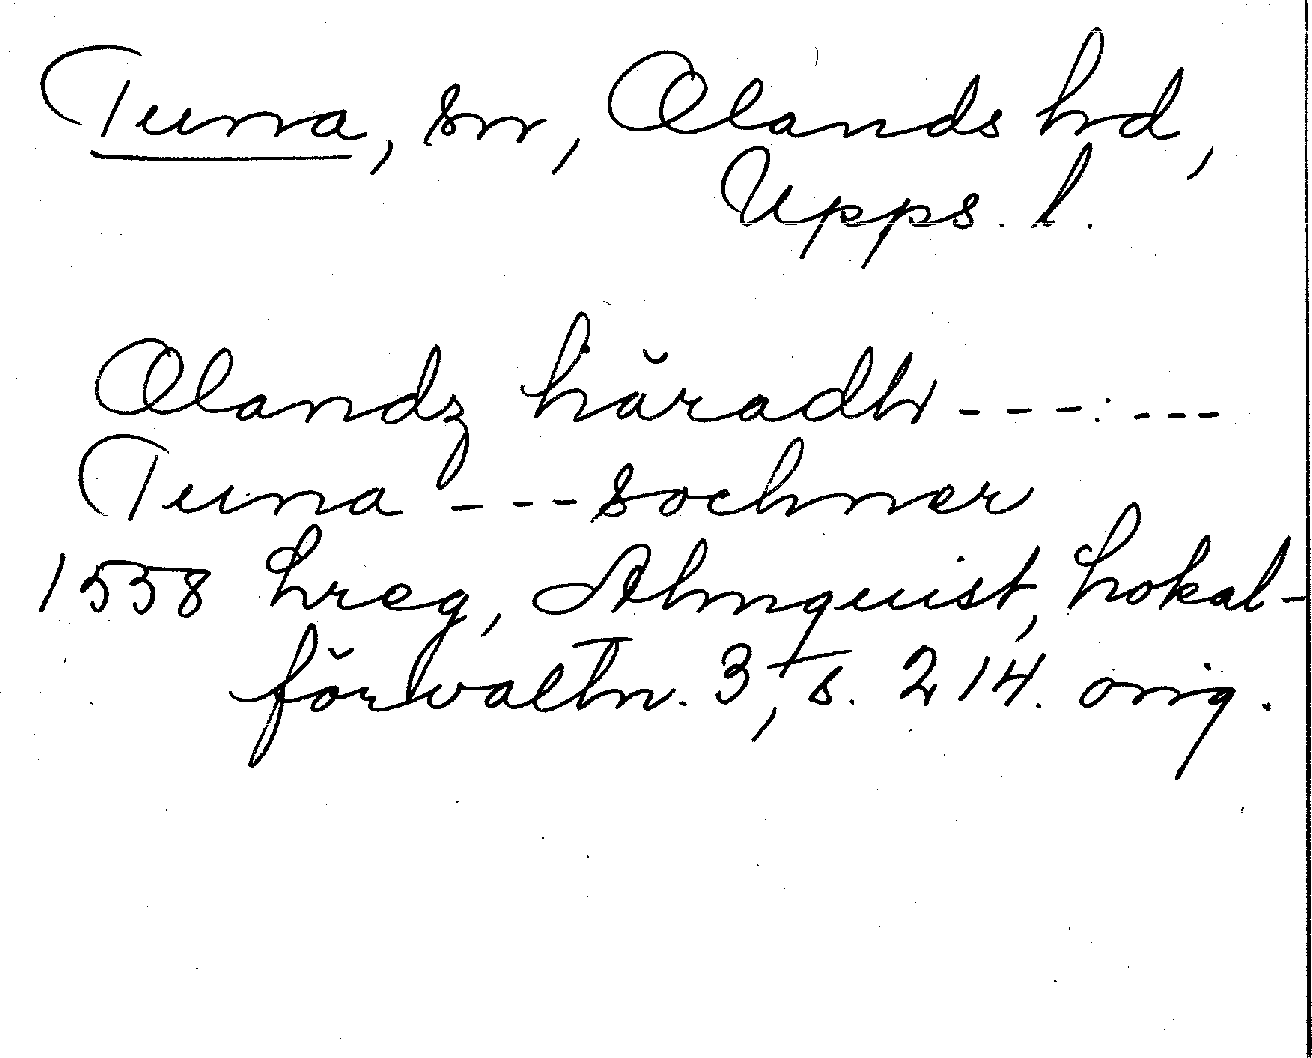 Tuna, sn, Olands hd,
Upps. l.
Olandz häradh - - - : - - -
Tuna - - - sochner
1558 hreg, Almquist, Lokal-
förvaltn. 3, s. 214. orig.